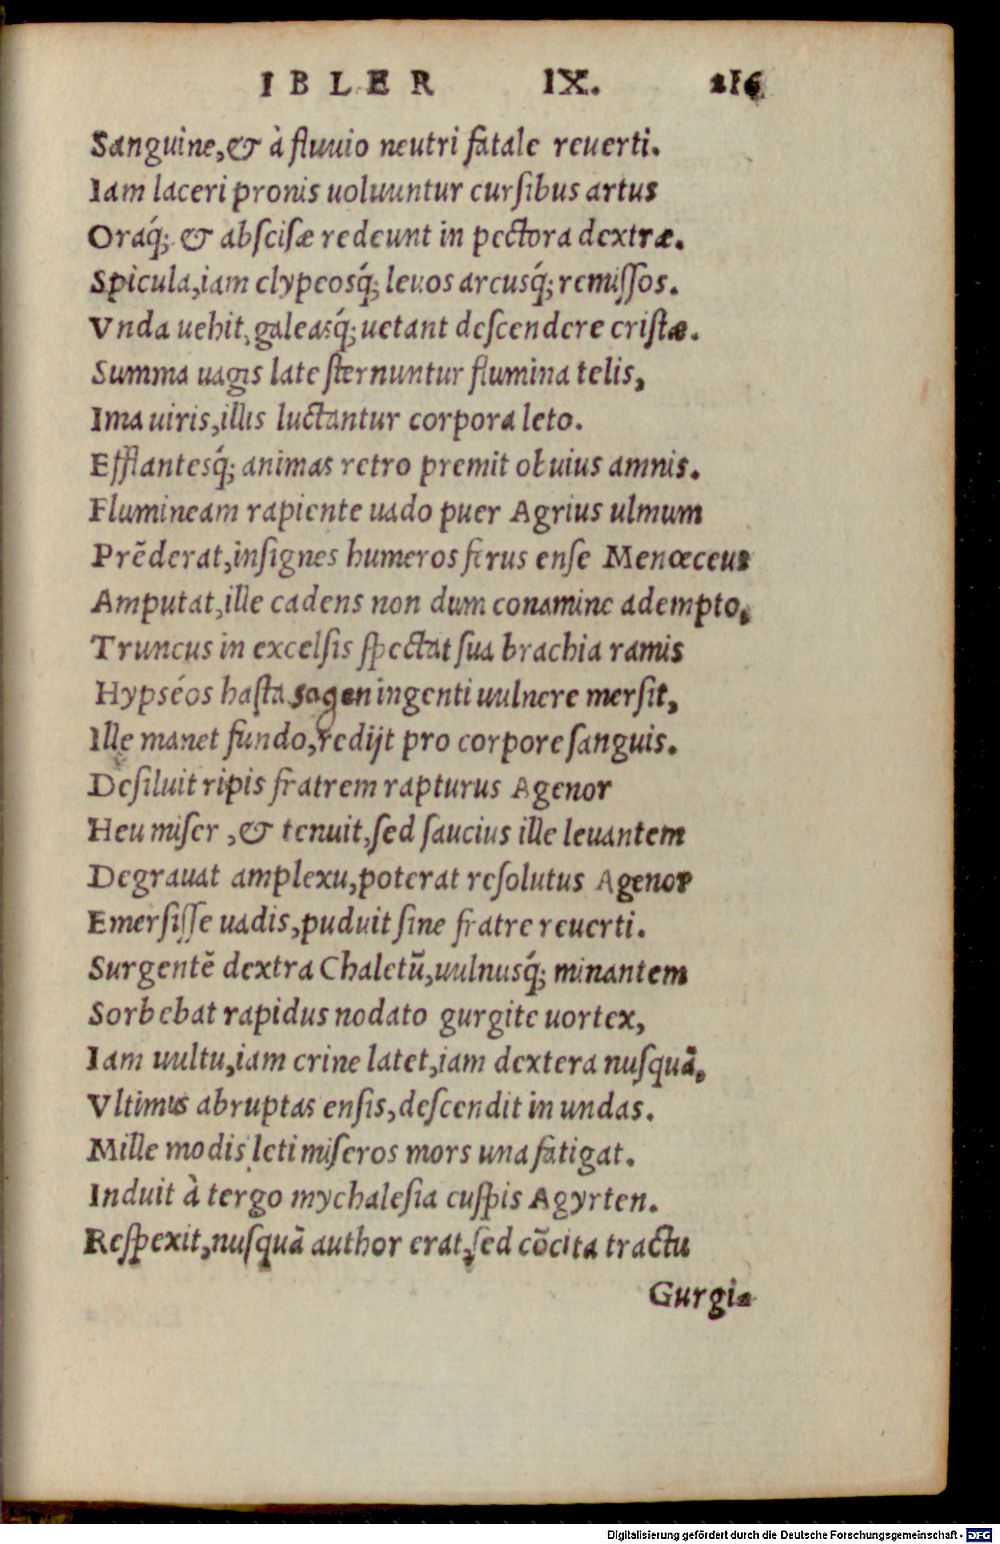 IBLER IX. 216
Sanguine,& à fluuio neutri fatale reuerti.
Iam laceri pronis uoluuntur cursibus artus
Oraq́; & abscisæ redeunt in pectora dextræ.
Spicula,iam clypeosq́; leuos arcusq́; remissos.
Vnda uehit, galeasq́; uetant descendere cristæ.
Summa uagis late sternuntur flumina telis,
Ima uiris,illis luctantur corpora leto.
Efflantesq́; animas retro premit obuius amnis.
Flumineam rapiente uado puer Agrius ulmum
Prēderat,insignes humeros ferus ense Menœceus
Amputat,ille cadens non dum conamine adempto,
Truncus in excelsis spectat sua brachia ramis
Hypséos hasta sagen ingenti uulnere mersit,
Ille manet fundo,redijt pro corpore sanguis.
Desiluit ripis fratrem rapturus Agenor
Heu miser ,& tenuit,sed saucius ille leuantem
Degrauat amplexu,poterat resolutus Agenor
Emersisse uadis,puduit sine fratre reuerti.
Surgentē dextra Chaletū,uulnusq́; minantem
Sorbebat rapidus nodato gurgite uortex,
Iam uultu,iam crine latet,iam dextera nusquā,
Vltimus abruptas ensis,descendit in undas.
Mille modis leti miseros mors una fatigat.
Induit à tergo mychalesia cuspis Agyrten.
Respexit,nusquā author erat,sed cōcita tractu
Gurgi-
Digitalisierung gefördert durch die Deutsche Forschungsgemeinschaft - DFG